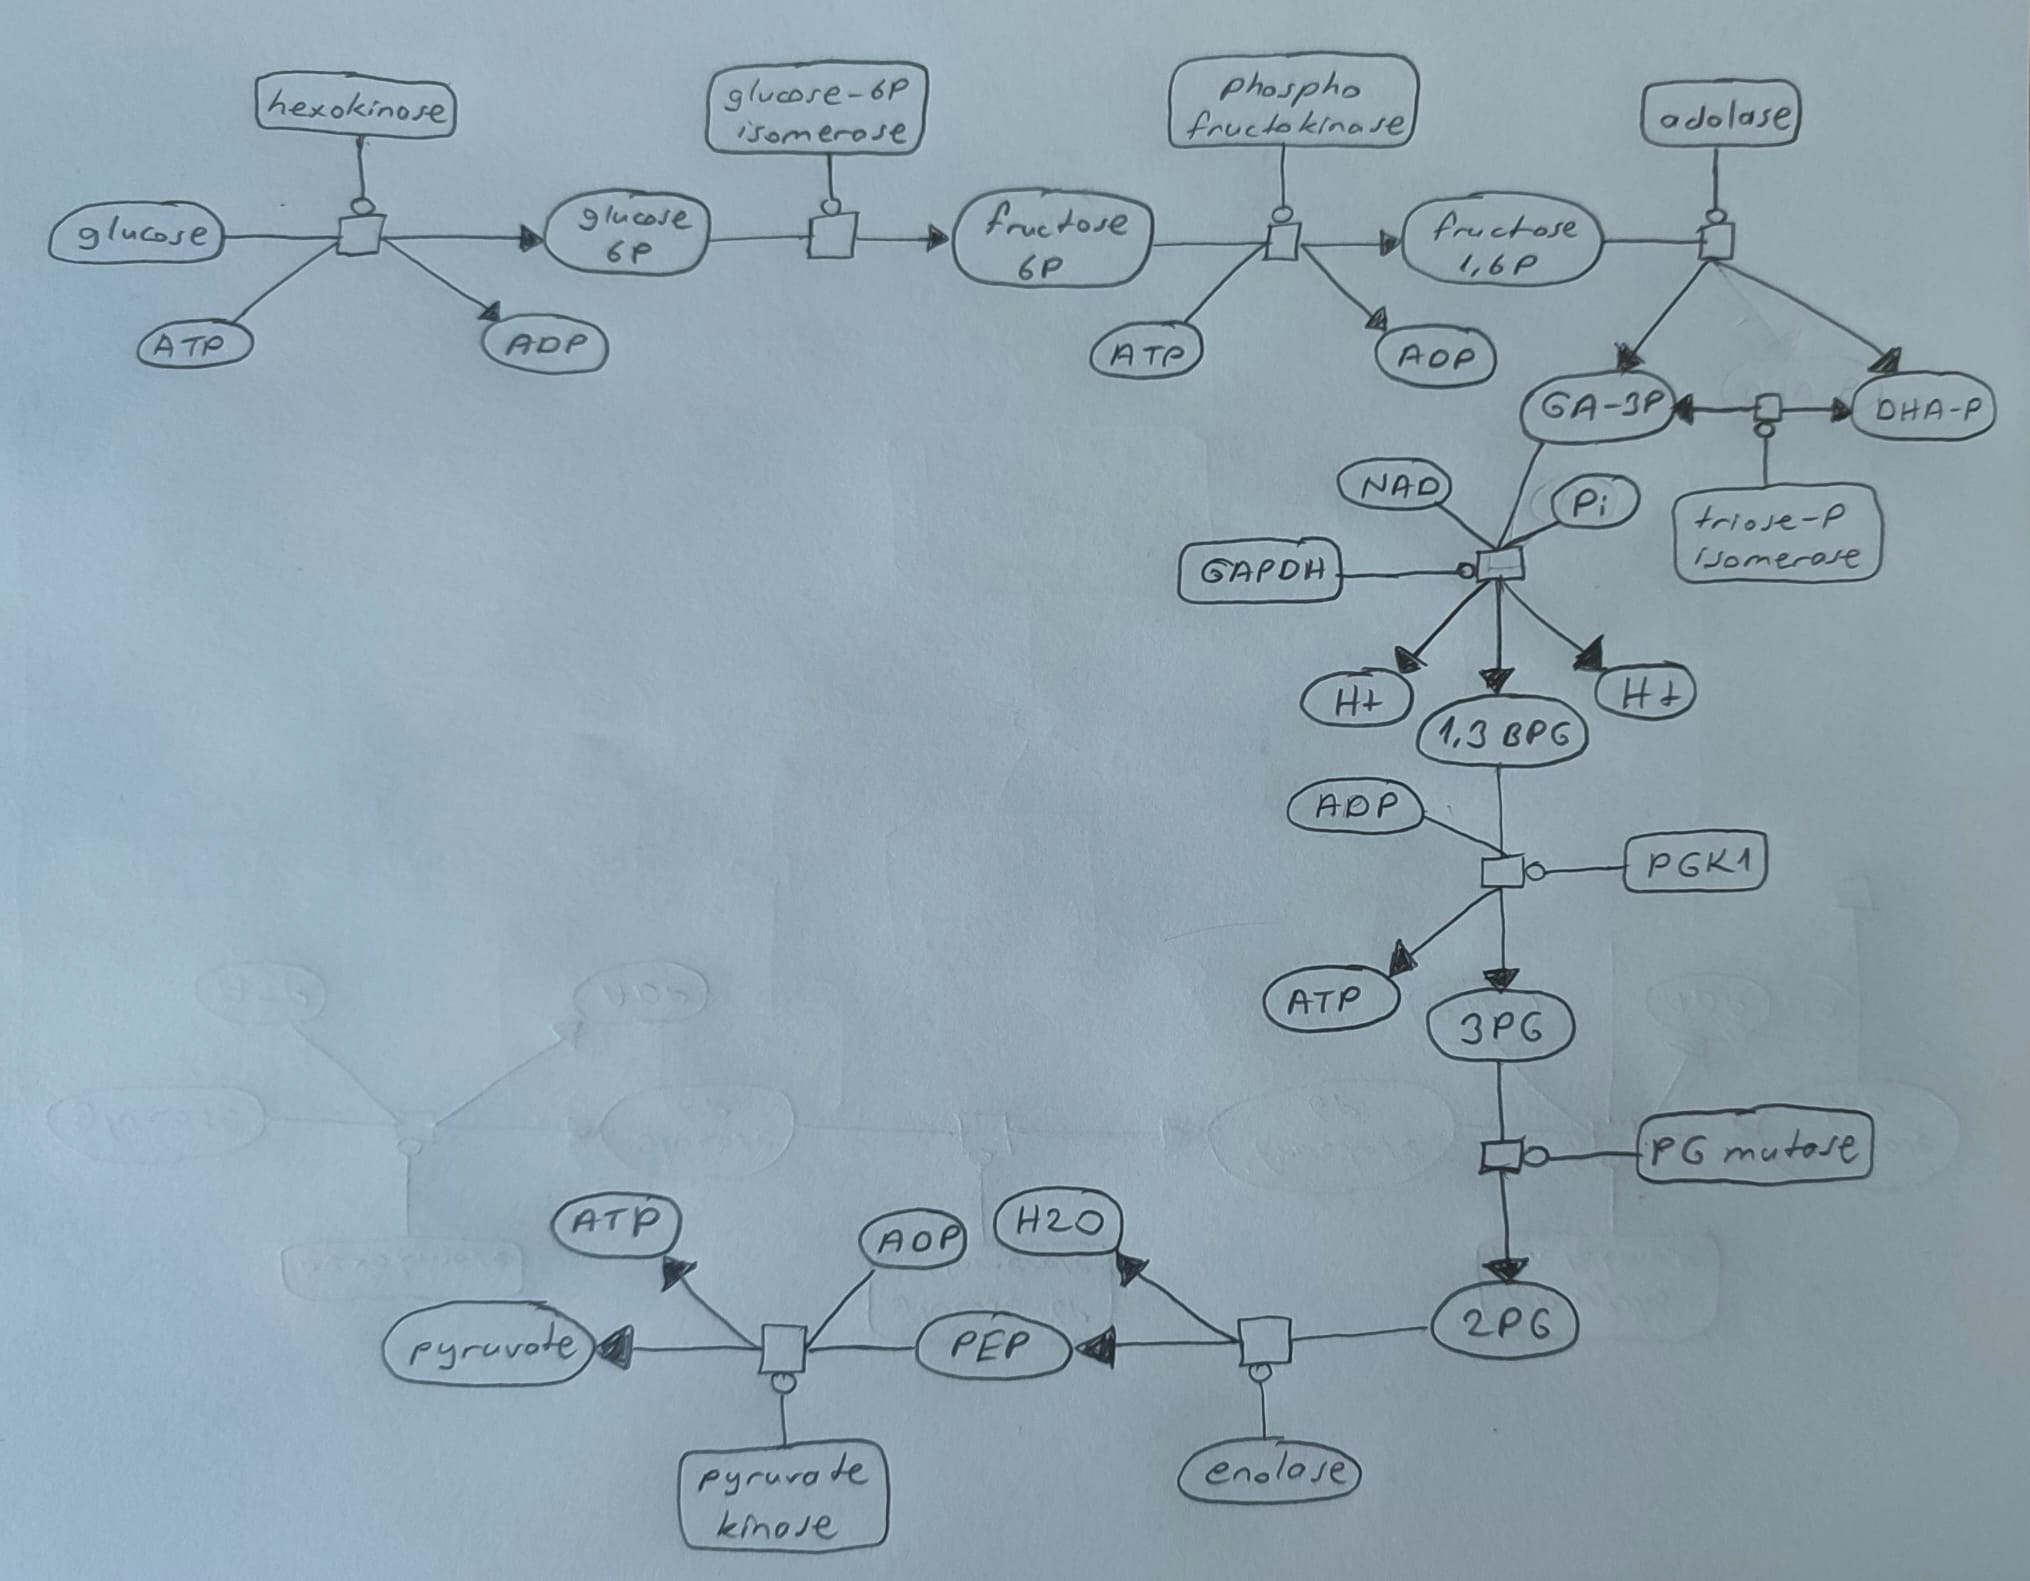 hexokinase
glucose-6P
isomerase
phospho
fructokinase
adolase
glucose
glucose
6P
fructose
6P
fructose
1,6P
ATP
ADP
ATP
ADP
GA-3P
DHA-P
NAD
Pi
triose-P
isomerase
GAPDH
H+
H+
1,3 BPG
ADP
PGK1
ATP
3PG
PG mutase
ATP
ADP
H2O
2PG
pyruvate
PEP
enolase
pyruvate
kinase